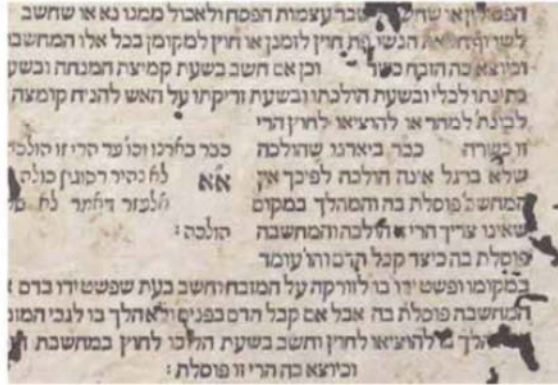 או עצמות הפסח ולאכול ממנו נא או שחשב
חוץ לזמנן או חוץ למקומן בכל אלו
וכיוצא בה הזבח כשר וכן אם חשב בשעת קמיצת המנחה ובשע
נתינתו לכלי ובשעת הולכתו ובשעת זריקתו על האש להניח קומצה
למחר או להוציאו לחוץ הרי
זו כשרה כבר ביארנו שהולכה
שלא ברגל אינה הולכה לפיכך אין
המחשבה פוסלת בה והמהלך במקום
שאינו צריך הרי הולכה והמחשבה
פוסלת בה כיצד קבל הדם והו עומד
כבר בארנו וכו עד הרי זו הולכה
אא לא נהיר דסוגין כולה
אלעזר דאמר לא
הולכה :
במקומו ופשט ידו בו לזורקה על המזבח וחשב בעת שפשט ידו בדם
המחשבה פוסלת בה אבל אם קבל הדם בפנים ולא הלך בו לגבי
בו להוציאו לחוץ וחשב בשעת הליכו לחוץ במחשבת
וכיוצא בה הרי זו פוסלת :